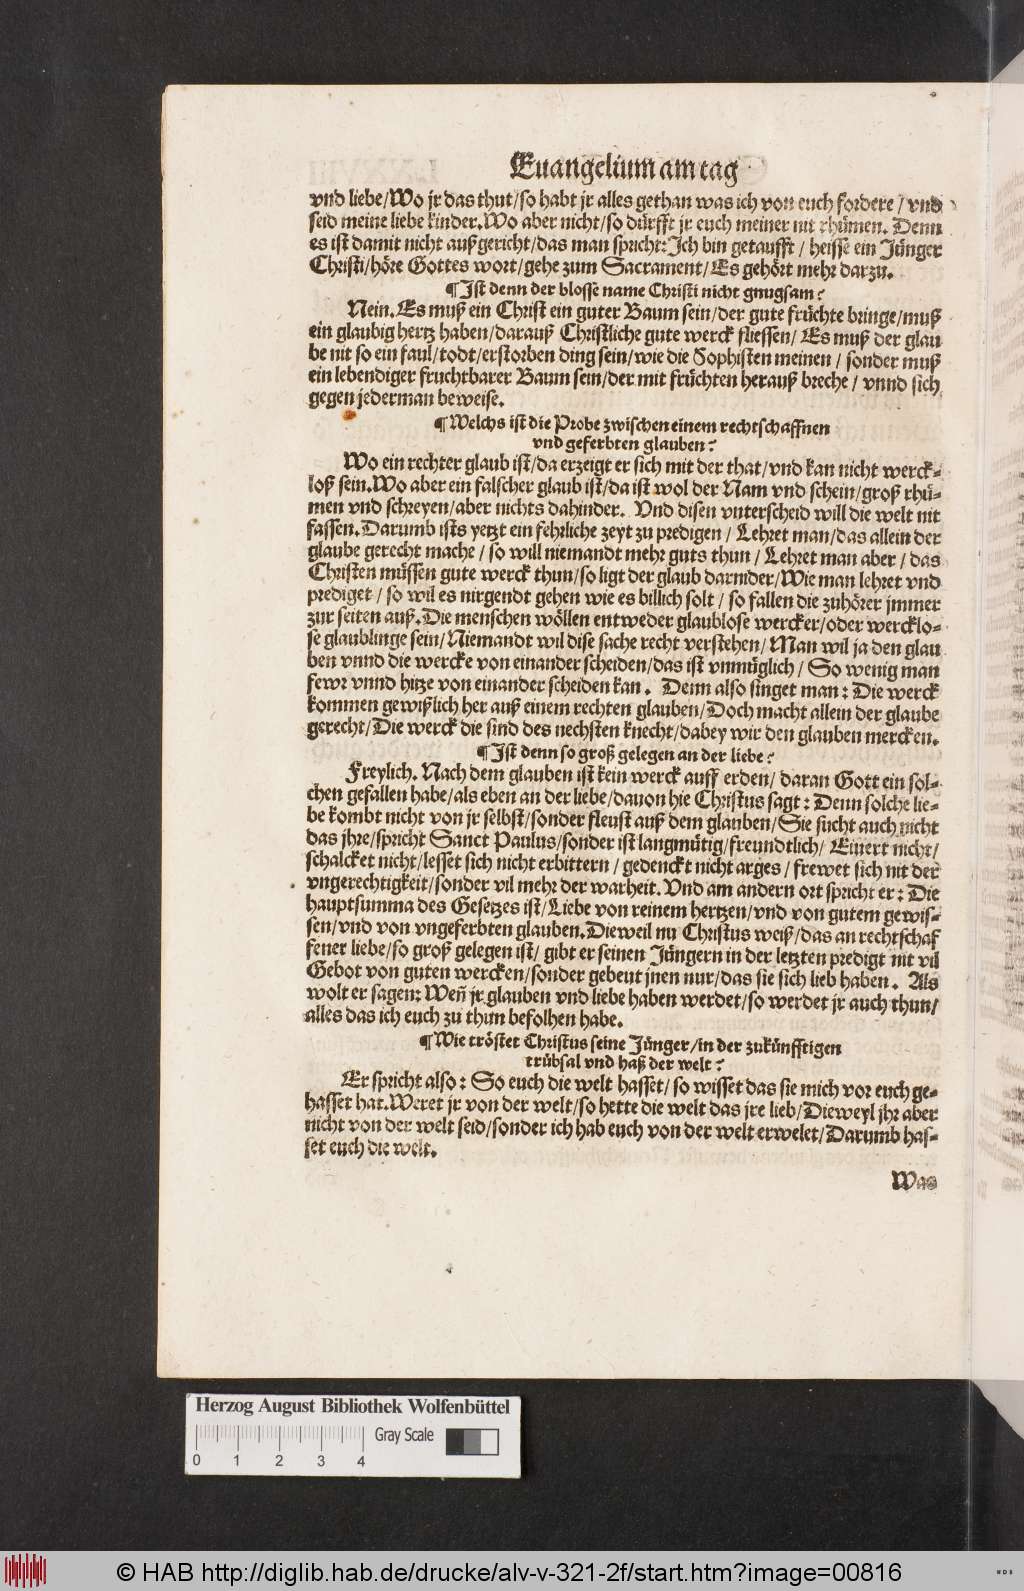 Euangelium am tag
vnd liebe/Wo jr das thut/so habt jr alles gethan was ich von euch fordere/vnd
seid meine liebe kinder.Wo aber nicht/so dürfft jr euch meiner nit rhümen. Denn
es ist damit nicht außgericht/das man spricht:Ich bin getaufft/heisse ein Jünger
Christi/höre Gottes wort/gehe zum Sacrament/Es gehört mehr darzu.
¶Ist denn der blosse name Christi nicht gnugsam?
Nein.Es muß ein Christ ein guter Baum sein/der gute früchte bringe/muß
ein glaubig hertz haben/darauß Christliche gute werck fliessen/Es muß der glau
be nit so ein faul/todt/erstorben ding sein/wie die Sophisten meinen/sonder muß
ein lebendiger fruchtbarer Baum sein/der mit früchten herauß breche/vnnd sich
gegen jederman beweise.
¶Welchs ist die Probe zwischen einem rechtschaffnen
vnd geferbten glauben?
Wo ein rechter glaub ist/da erzeigt er sich mit der that/vnd kan nicht werck-
loß sein.Wo aber ein falscher glaub ist/da ist wol der Nam vnd schein/groß rhü-
men vnd schreyen/aber nichts dahinder. Vnd disen vnterscheid will die welt nit
fassen.Darumb ists yetzt ein fehrliche zeyt zu predigen/Lehret man/das allein der
glaube gerecht mache/so will niemandt mehr guts thun/Lehret man aber/das
Christen müssen gute werck thun/so ligt der glaub darnider/Wie man lehret vnd
prediget/so wil es nirgendt gehen wie es billich solt/so fallen die zuhörer jmmer
zur seiten auß.Die menschen wöllen entweder glaublose wercker/oder wercklo-
se glaublinge sein/Niemandt wil dise sache recht verstehen/Man wil ja den glau
ben vnnd die wercke von einander scheiden/das ist vnmüglich/So wenig man
fewr vnnd hitze von einander scheiden kan. Denn also singet man: Die werck
kommen gewißlich her auß einem rechten glauben/Doch macht allein der glaube
gerecht/Die werck die sind des nechsten knecht/dabey wir den glauben mercken.
¶Ist denn so groß gelegen an der liebe?
Freylich. Nach dem glauben ist kein werck auff erden/daran Gott ein sol-
chen gefallen habe/als eben an der liebe/dauon hie Christus sagt: Denn solche lie-
be kombt nicht von jr selbst/sonder fleust auß dem glauben/Sie sucht auch nicht
das jhre/spricht Sanct Paulus/sonder ist langmütig/freundtlich/Eiuert nicht/
schalcket nicht/lesset sich nicht erbittern/gedenckt nicht arges/frewet sich nit der
vngerechtigkeit/sonder vil mehr der warheit.Vnd am andern ort spricht er: Die
hauptsumma des Gesetzes ist/Liebe von reinem hertzen/vnd von gutem gewis-
sen/vnd von vngeferbten glauben.Dieweil nu Christus weiß/das an rechtschaf
fener liebe/so groß gelegen ist/gibt er seinen Jüngern in der letzten predigt nit vil
Gebot von guten wercken/sonder gebeut jnen nur/das sie sich lieb haben. Als
wolt er sagen: Weñ jr glauben vnd liebe haben werdet/so werdet jr auch thun/
alles das ich euch zu thun befolhen habe.
¶Wie tröstet Christus seine Jünger/in der zukünfftigen
trübsal vnd haß der welt?
Er spricht also: So euch die welt hasset/so wisset das sie mich vor euch ge-
hasset hat.Weret jr von der welt/so hette die welt das jre lieb/Dieweyl jhr aber
nicht von der welt seid/sonder ich hab euch von der welt erwelet/Darumb has-
set euch die welt.
Was
Herzog August Bibliothek Wolfenbüttel
Gray Scale
0 1 2 3 4
© HAB http://diglib.hab.de/drucke/alv-v-321-2f/start.htm?image=00816